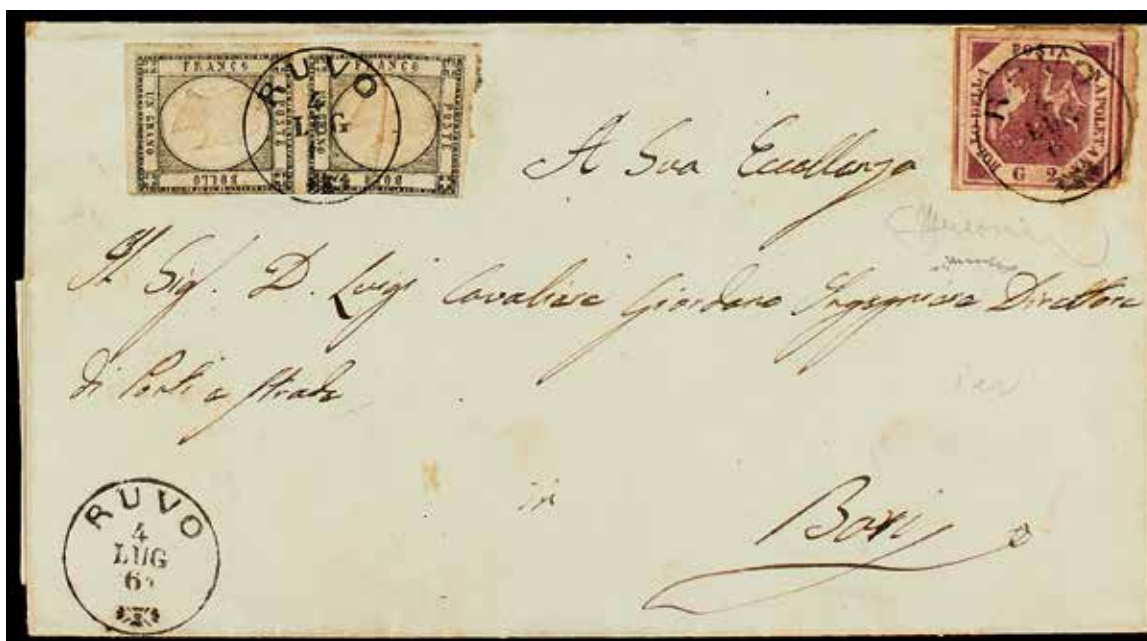 FRANCO
POSTE
BOLLO
UN GRANO
FRANCO
POSTE
BOLLO
UN GRANO
RUVO
4
LUG
BOLLO DELLA POSTA NAPOLETANA
G 2
A Sua Eccellenza
Il Sig. D. Luigi Cavaliere Giordano Ingegniere Direttore
di Ponti e Strade
in
Bari
RUVO
4
LUG